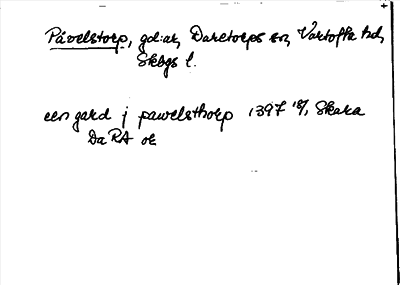 Påvelstorp, gd:ar, Daretorps sn, Vartofta hd,
Skbgs l.
een gard j pawelsthorp 1397 18/1 Skara
DaRA or